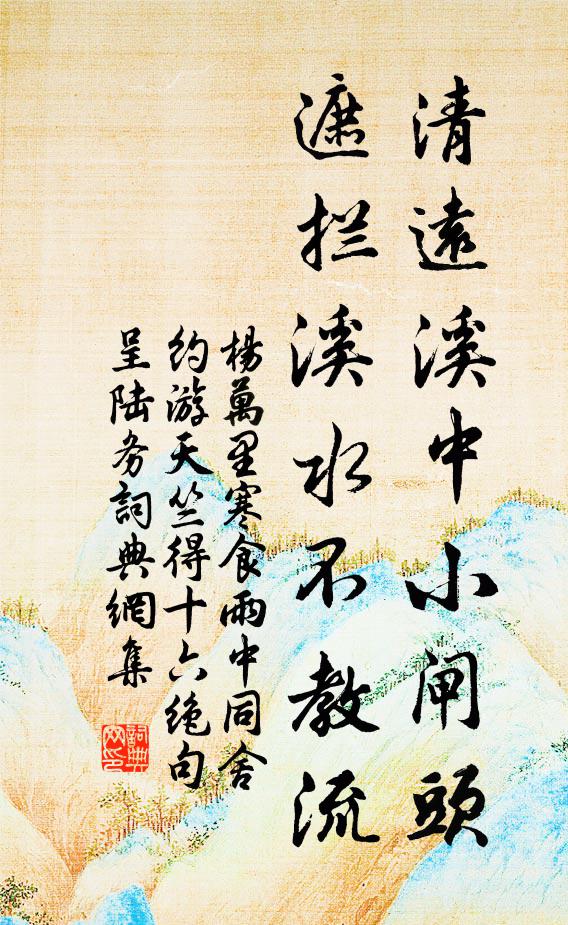 清遠溪中小閘頭
遮拦溪水不教流
楊萬里寒食雨中同舍
約游天竺得十六絶句
呈陆务詞典網集
詞典
网印